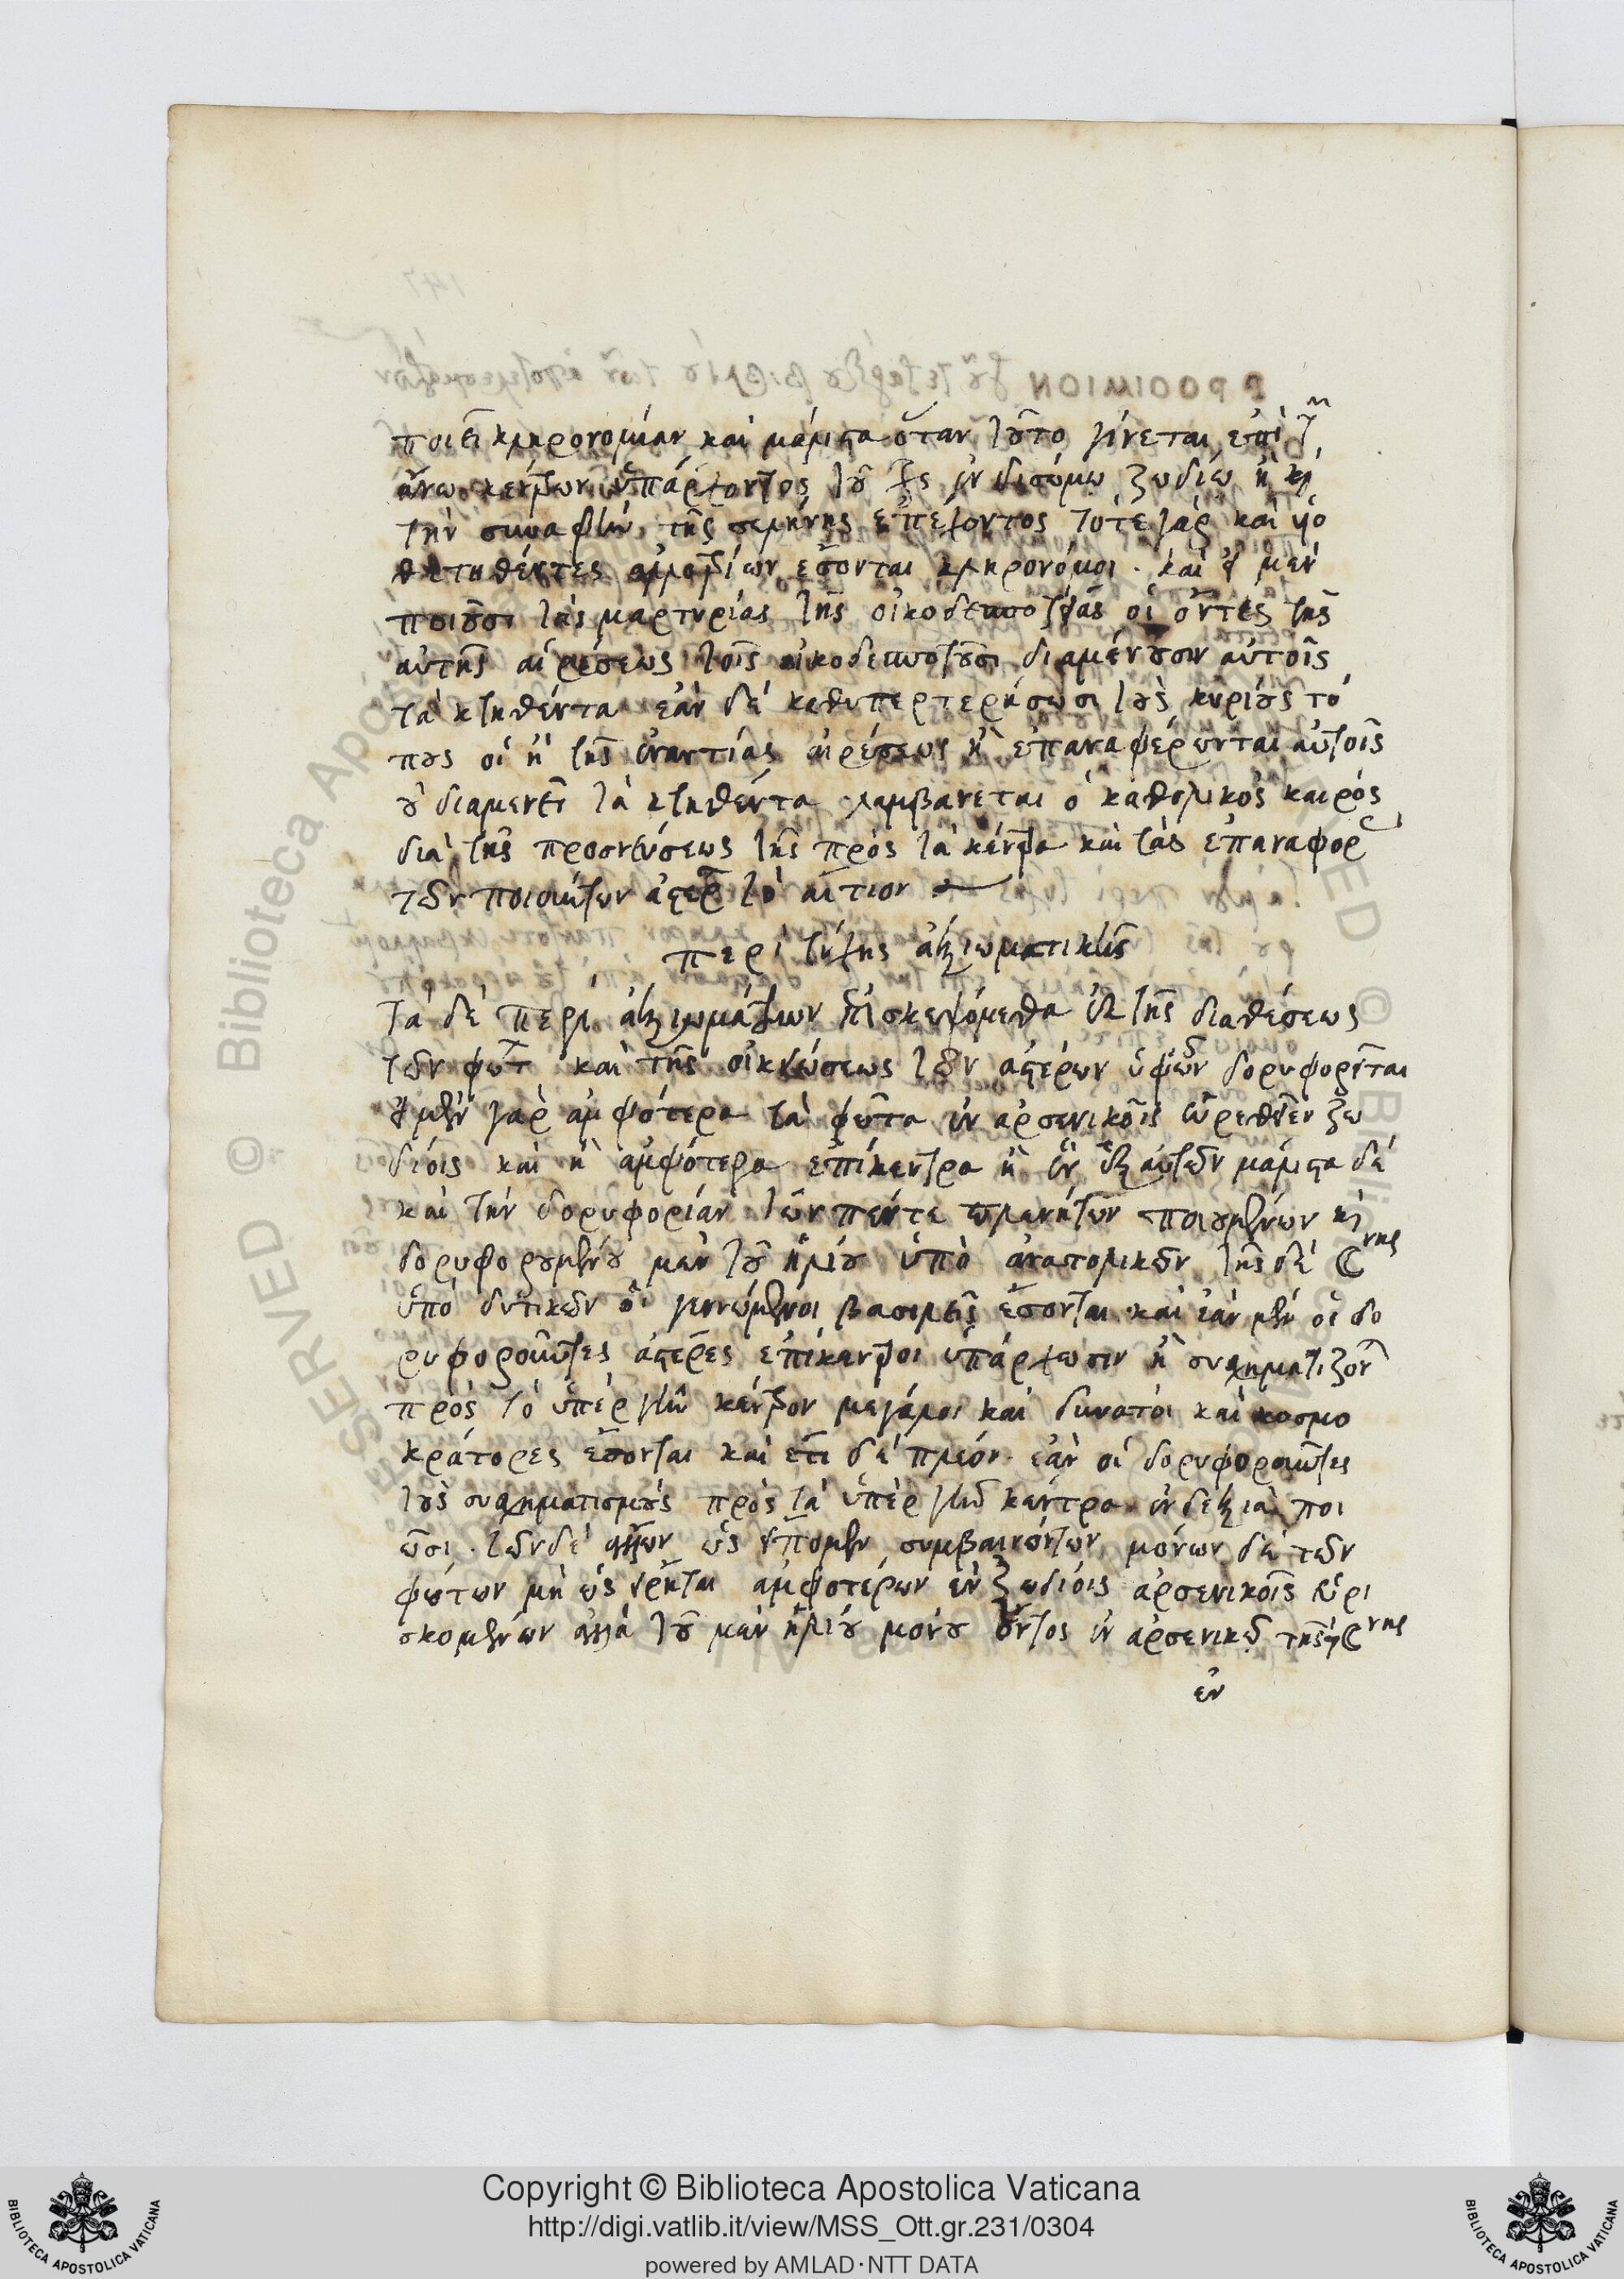 ποιεῖ κληρονομίαν καὶ μάλιστα ὅταν τοῦτο γίνεται ἐπὶ τῶν
ἄνω κέντρων ὑπάρχοντος τοῦ ἐν δισώμῳ ζωδίῳ ἢ καὶ
τὴν συναφὴν τῆς σελήνης ἐπέχοντος τότε γὰρ καὶ υἱο
θετηθέντες ἀλλοτρίων ἔσονται κληρονόμοι. καὶ εἰ μὲν
ποιοῦσι τὰς μαρτυρίας τῆς οἰκοδεσποτείας οἱ ὄντες τῆς
αὐτῆς αἱρέσεως τοῖς οἰκοδεσποτοῦσι διαμένουσιν αὐτοῖς
τὰ κτηθέντα ἐὰν δὲ καθυπερτερήσωσι τοὺς κυρίους τό
πους οἱ ἢ τῆς ἐναντίας αἱρέσεως ἢ ἐπαναφέρωνται αὐτοῖς
οὐ διαμενεῖ τὰ κτηθέντα λαμβάνεται ὁ καθολικὸς καιρὸς
διὰ τῆς προσνεύσεως τῆς πρὸς τὰ κέντρα καὶ τὰς ἐπαναφορὰς
τῶν ποιούντων ἀστέρων τὸ αἴτιον
περὶ τύχης ἀξιωματικῆς
Τὰ δὲ περὶ ἀξιωμάτων ἐπισκεψόμεθα ἐκ τῆς διαθέσεως
τῶν φώτων καὶ τῆς οἰκειώσεως τῶν ἀστέρων ὑφ' ὧν δορυφορεῖται
εἰ μὲν γὰρ ἀμφότερα τὰ φῶτα ἐν ἀρσενικοῖς εὑρεθεῖεν ζω
δίοις καὶ ἢ ἀμφότερα ἐπίκεντρα ἢ ἓν ἐξ αὐτῶν μάλιστα δὲ
καὶ τὴν δορυφορίαν τῶν πέντε πλανήτων ποιουμένων καὶ
δορυφορουμένου μὲν τοῦ ἡλίου ὑπὸ ἀνατολικῶν τῆς δὲ ☾νης
ὑπὸ δυτικῶν οἱ γεννώμενοι βασιλεῖς ἔσονται καὶ ἐὰν μὲν οἱ δο
ρυφοροῦντες ἀστέρες ἐπίκεντροι ὑπάρχωσιν ἢ συσχηματίζονται
πρὸς τὸ ὑπὲρ γῆν κέντρον μεγάλοι καὶ δυνατοὶ καὶ κοσμο
κράτορες ἔσονται καὶ ἔτι δὲ πλέον ἐὰν οἱ δορυφοροῦντες
τοὺς συσχηματισμοὺς πρὸς τὰ ὑπὲρ γῆν κέντρα ἐν δεξιᾷ ποι
ῶσι. τῶν δὲ ἄλλων ὡς εἴπομεν συμβαινόντων μόνων δὲ τῶν
φώτων μὴ ὡς εἴρηται ἀμφοτέρων ἐν ζωδίοις ἀρσενικοῖς εὑρι
σκομένων ἀλλὰ τοῦ μὲν ἡλίου μόνου ὄντος ἐν ἀρσενικῷ τῆς ☾νης
ἐν
Copyright © Biblioteca Apostolica Vaticana
http://digi.vatlib.it/view/MSS_Ott.gr.231/0304
powered by AMLAD·NTT DATA
BIBLIOTECA APOSTOLICA VATICANA
BIBLIOTECA APOSTOLICA VATICANA